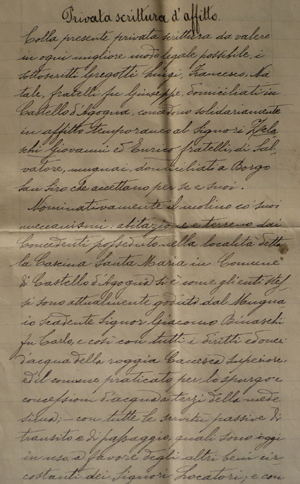 Privata scrittura d'affitto.
Colla presente privata scrittura da valere
in ogni migliore modo legale possibile, i
sottoscritti Gregotti Luigi, Francesco, Na
tale, fratelli fu Giuseppe, domiciliati in
Castello d'Agogna, concedono solidariamente
in affitto temporaneo al Signori
Giovanni ed Enrico fratelli di Sal-
vatore, mugnai, domiciliati a Borgo
San Siro che accettano per sè e suoi.
Nominativamente il molino co' suoi
meccanismi, abitazione e terreno dai
Concedenti posseduto nella località detta
la Cascina Santa Maria in Comune
di Castello d'Agogna sì è come gli enti stes
si sono attualmente goduti dal Mugna
io scadente Signor Giacomo Binaschi
fu Carlo, e così con tutti i diritti ed oneri
d'acqua della roggia superiore
ed il comune praticato per lo spurgo e
concessioni d'acqua a terzi della mede
sima; - con tutte le servitù passive di
transito e di passaggio, quali sono oggi
in uso a favore degli altri beni cir
costanti dei Signori Locatori; e con